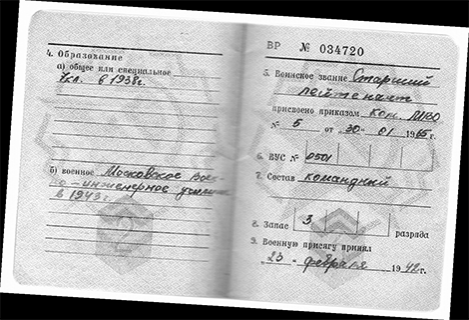 4. Образование
а) общее или специальное
7 кл. в 1938г.
б) военное Московское воен-
но-инженерное училище
в 1943г.
ВР № 034720
5. Воинское звание Старший
лейтенант
присвоено приказом ком. МВО
№ 5 от "30" 01 1965г.
6. ВУС № 0501
7. Состав командный
8. Запас 3 разряда
9. Военную присягу принял
"23" февраля 1942г.